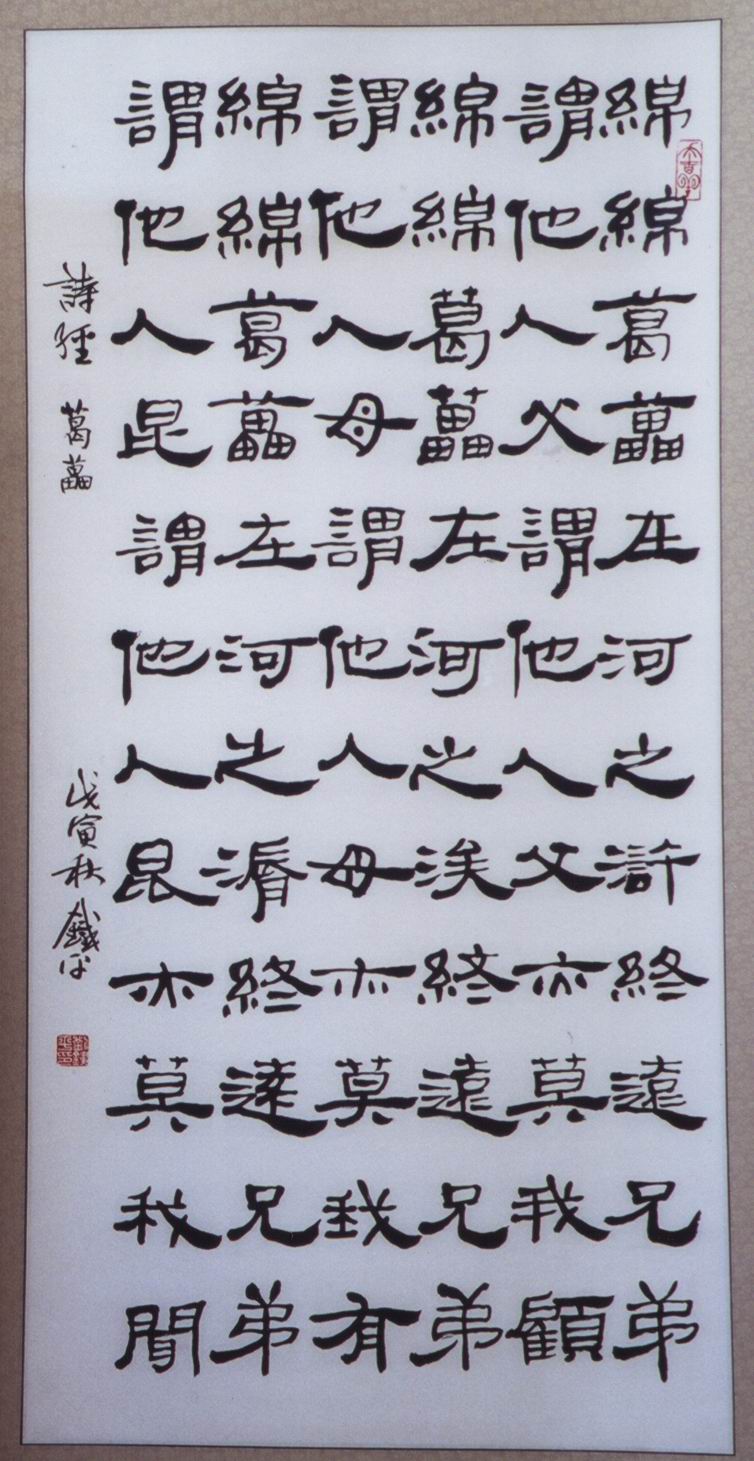 綿綿葛藟在河之滸終遠兄弟
謂他人父謂他人父亦莫我顧
綿綿葛藟在河之涘終遠兄弟
謂他人母謂他人母亦莫我有
綿綿葛藟在河之漘終遠兄弟
謂他人昆謂他人昆亦莫我聞
詩經 葛藟 戊寅秋 鐵平